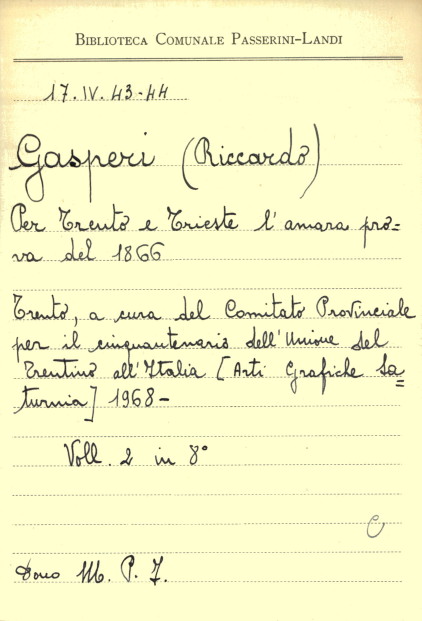 BIBLIOTECA COMUNALE PASSERINI-LANDI
17.IV.43-44
Gasperi (Riccardo)
Per Trento e Trieste l'amara pro=
va del 1866
Trento, a cura del Comitato Provinciale
per il cinquantenario dell'Unione del
Trentino all'Italia [Arti Grafiche Sa=
turnia] 1968-
Voll. 2 in 8°
C
Dono M. P. I.